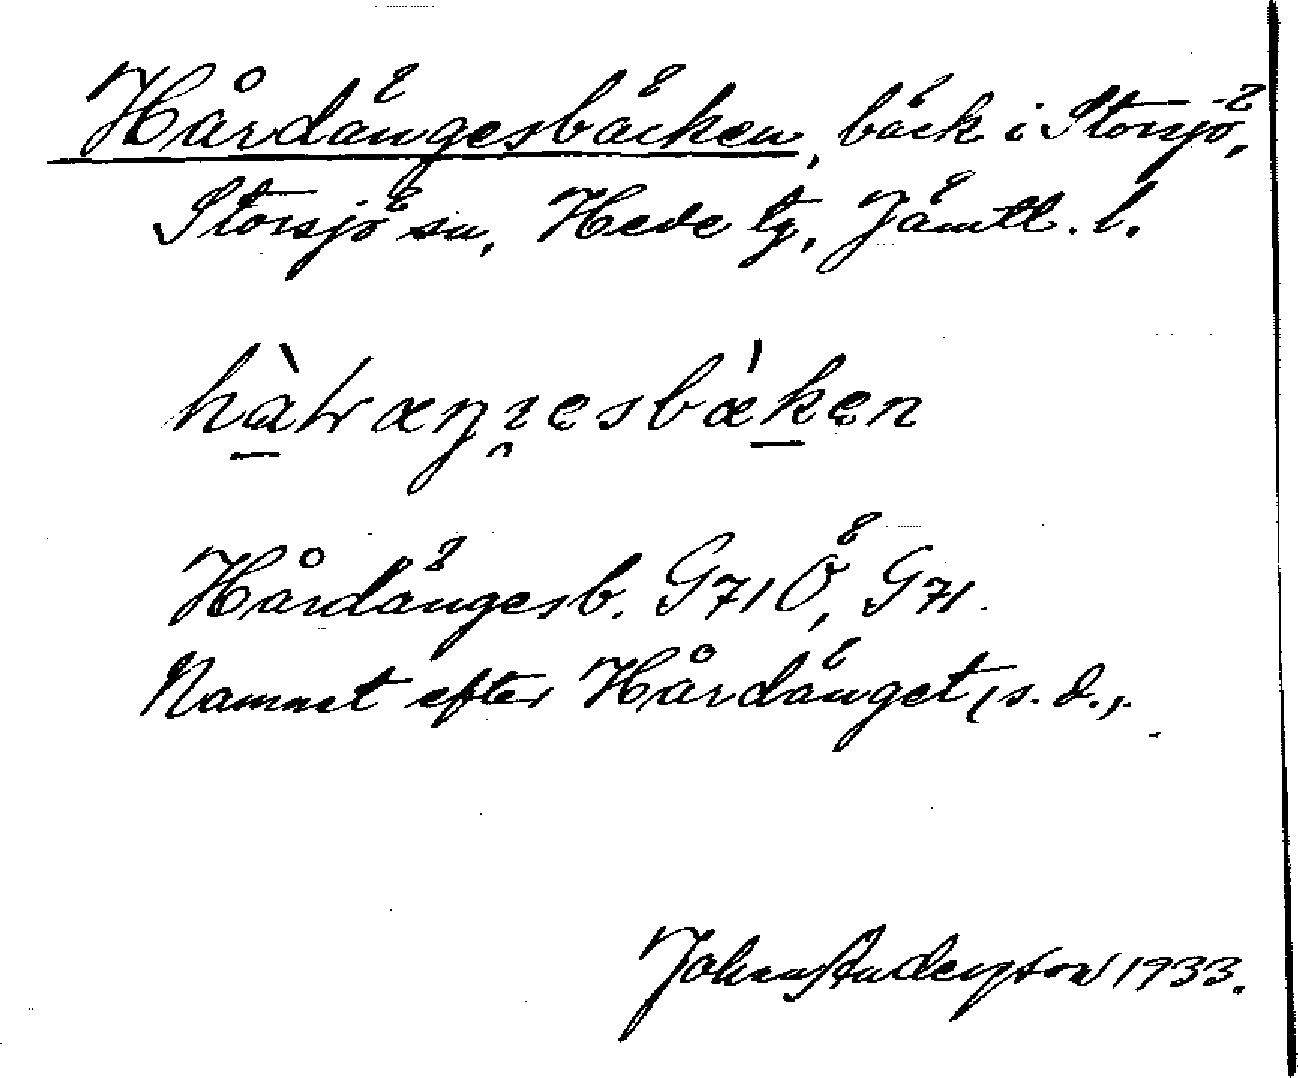 Hårdängesbäcken, bäck i Storsjö,
Storsjö sn, Hede tg, Jämtl. l.
Hårdängesb. G71Ö, G71.
Namnet efter Hårdänget, s. d.,
John Anderson 1933.